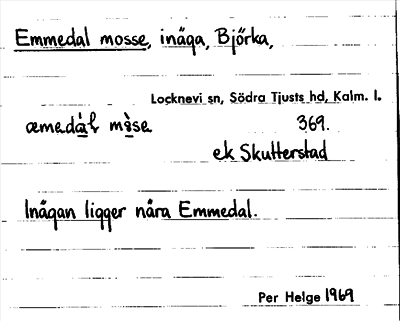 Emmedal mosse, inäga, Björka,
Locknevi sn, Södra Tjusts hd, Kalm. l.
369.
ek Skutterstad
Inägan ligger nära Emmedal.
Per Helge 1969